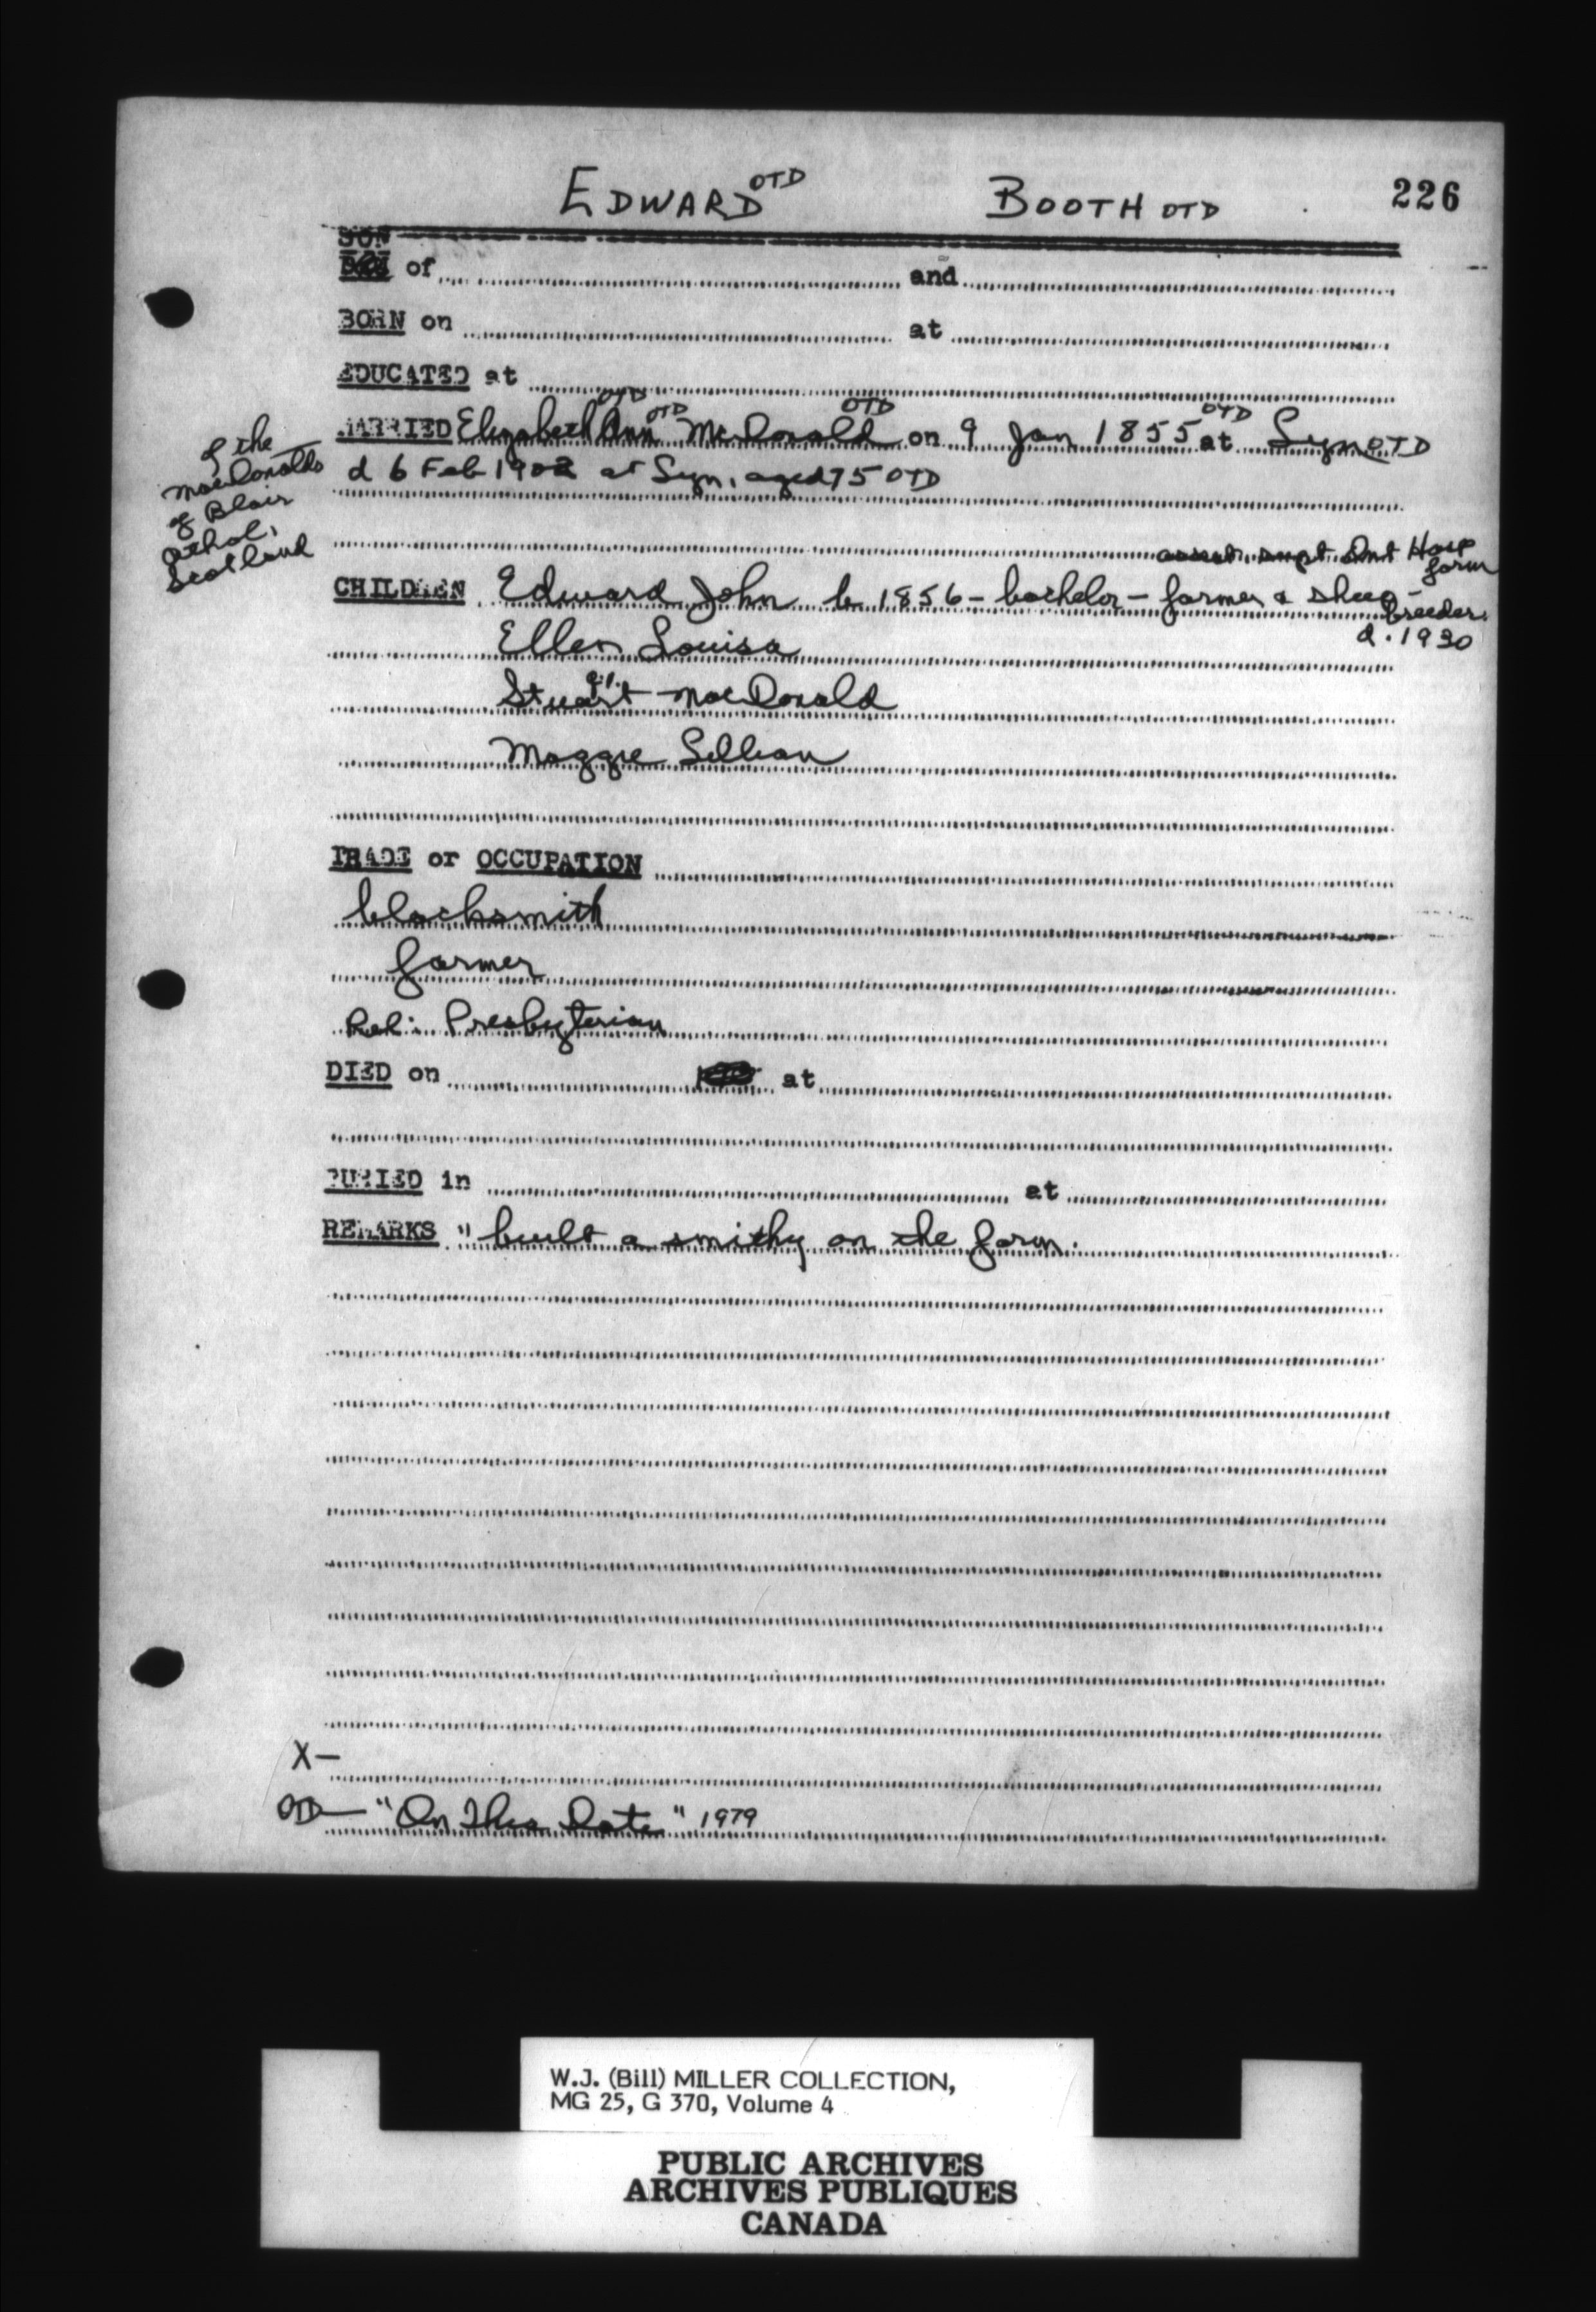 EDWARD OTD BOOTH OTD 226
SON
of and
BORN on at
EDUCATED at
MARRIED Elizabeth OTD Ann OTD McDonald OTD on 9 Jan 1855 OTD at Lyn OTD
of the
MacDonalds
of Blair
Athol,
Scotland
d 6 Feb 1902 at Lyn, aged 75 OTD
assist. supt Ont Hosp
farm
CHILDREN Edward John b 1856 - bachelor - farmer & sheep-
breeder.
d. 1930
Ellen Louisa
Stuart MacDonald
Maggie Lillian
TRADE or OCCUPATION
blacksmith
farmer
Rel: Presbyterian
DIED on at
BURIED in at
REMARKS " built a smithy on the farm.
X-
OTD- "On This Date" 1979
W.J. (Bill) MILLER COLLECTION,
MG 25, G 370, Volume 4
PUBLIC ARCHIVES
ARCHIVES PUBLIQUES
CANADA